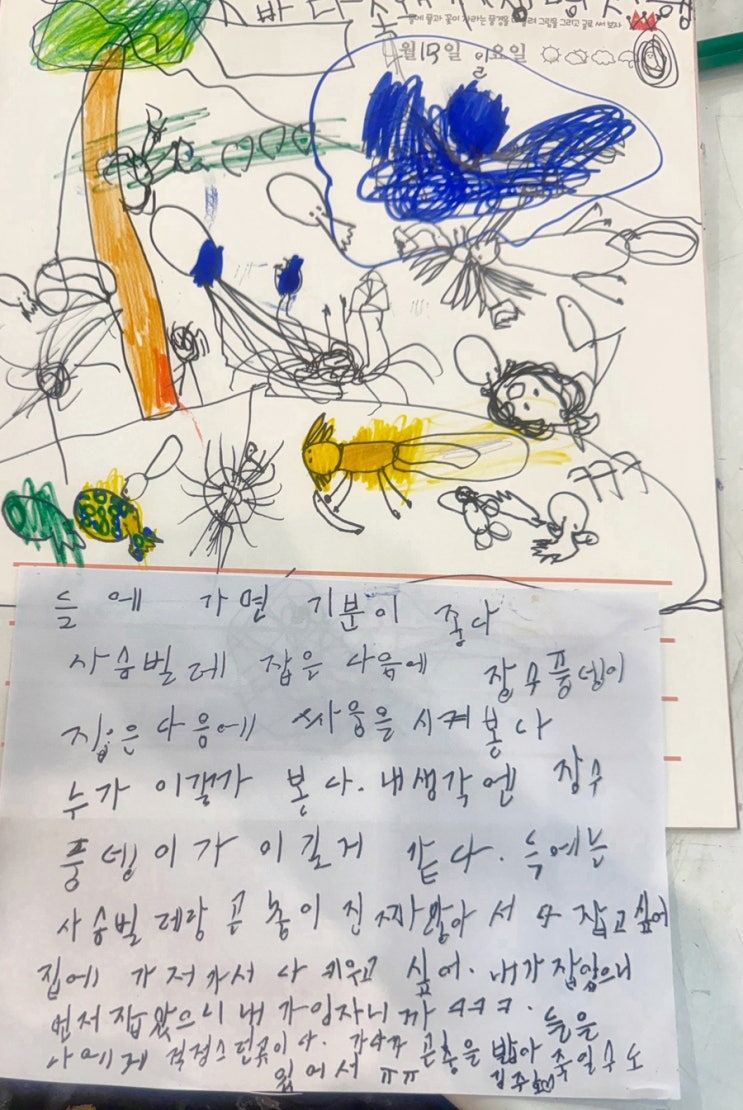 들에 풀과 꽃이 자라는 풍경을 그림을 그리고 글로 써 보자
월 19일 일요일
들에 가면 기분이 좋다
사슴벌레 잡은 다음에 장수풍뎅이
집은 다음에 싸움을 시켜 본다
누가 이길까 본다. 내생각엔 장수
풍뎅이가 이길게 같다. 늑에는
사슴벌레랑 곤충이 진짜많아서 다 잡고싶어
집에 가저가서 다 키우고 싶어. 내가 잡았으니
먼저 잡았으니 내가임자니까 ㅋㅋㅋ. 들은
나에게 걱정스런곳이다. 곤충을 밟아 죽일수도
있어서 ㅠㅠ